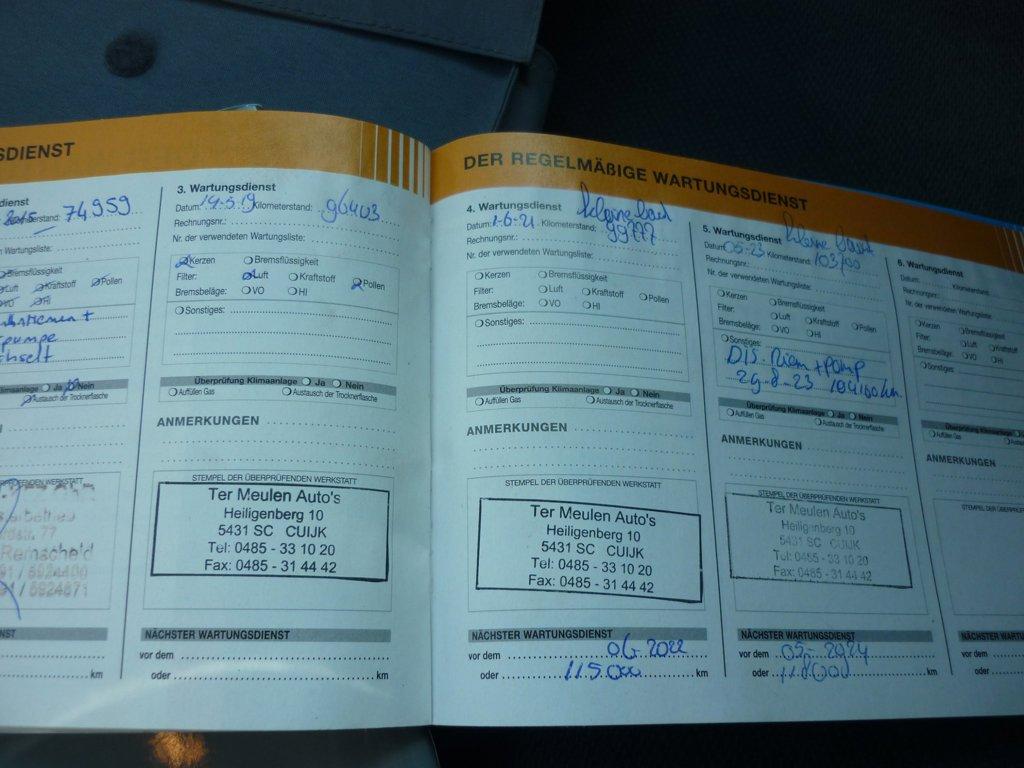 SDIENST
dienst
74959
rstand:
Wartungsliste:
Bremsflüssigkeit
Luft Kraftstoff Pollen
VO HI
pumpe
Klimaanlage Ja Nein
Austausch der Trocknerflasche
ÜBERPRÜFENDEN WERKSTATT
str. 77
Remscheid
91 / 6924400
91 / 6924671
NST
km
3. Wartungsdienst
Datum: 14-5-19 Kilometerstand: 96403
Rechnungsnr.:
Nr. der verwendeten Wartungsliste:
Kerzen Bremsflüssigkeit
Filter: Luft Kraftstoff Pollen
Bremsbeläge: VO HI
Sonstiges:
Überprüfung Klimaanlage Ja Nein
Auffüllen Gas Austausch der Trocknerflasche
ANMERKUNGEN
STEMPEL DER ÜBERPRÜFENDEN WERKSTATT
Ter Meulen Auto's
Heiligenberg 10
5431 SC CUIJK
Tel: 0485 - 33 10 20
Fax: 0485 - 31 44 42
NÄCHSTER WARTUNGSDIENST
vor dem
oder km
DER REGELMÄßIGE WARTUNGSDIENST
4. Wartungsdienst kleine
Datum: 1-6-21 Kilometerstand: 99777
Rechnungsnr.:
Nr. der verwendeten Wartungsliste:
Kerzen Bremsflüssigkeit
Filter: Luft Kraftstoff Pollen
Bremsbeläge: VO HI
Sonstiges:
Überprüfung Klimaanlage Ja Nein
Auffüllen Gas Austausch der Trocknerflasche
ANMERKUNGEN
STEMPEL DER ÜBERPRÜFENDEN WERKSTATT
Ter Meulen Auto's
Heiligenberg 10
5431 SC CUIJK
Tel: 0485 - 33 10 20
Fax: 0485 - 31 44 42
NÄCHSTER WARTUNGSDIENST
vor dem 06-2022
oder 115.000 km
5. Wartungsdienst kleine
Datum 05-23 Kilometerstand:
Rechnungsnr.:
Nr. der verwendeten Wartungsliste:
Kerzen Bremsflüssigkeit
Filter: Luft Kraftstoff Pollen
Bremsbeläge: VO HI
Sonstiges:
DIS. Riem + pomp
29-8-23 104100 km.
Überprüfung Klimaanlage Ja Nein
Auffüllen Gas Austausch der Trocknerflasche
ANMERKUNGEN
STEMPEL DER ÜBERPRÜFENDEN WERKSTATT
Ter Meulen Auto's
Heiligenberg 10
5431 SC CUIJK
Tel: 0485 - 33 10 20
Fax: 0485 - 31 44 42
NÄCHSTER WARTUNGSDIENST
vor dem 05-2024
oder km
6. Wartungsdienst
Datum: Kilometerstand:
Rechnungsnr.:
Nr. der verwendeten Wartungsliste:
Kerzen Bremsflüssigkeit
Filter: Luft Kraftstoff
Bremsbeläge: VO HI
Sonstiges:
Überprüfung Klimaanlage
Auffüllen Gas
ANMERKUNGEN
STEMPEL DER ÜBERPRÜFENDEN
NÄCHSTER WARTUNGSDIENST
vor dem
oder